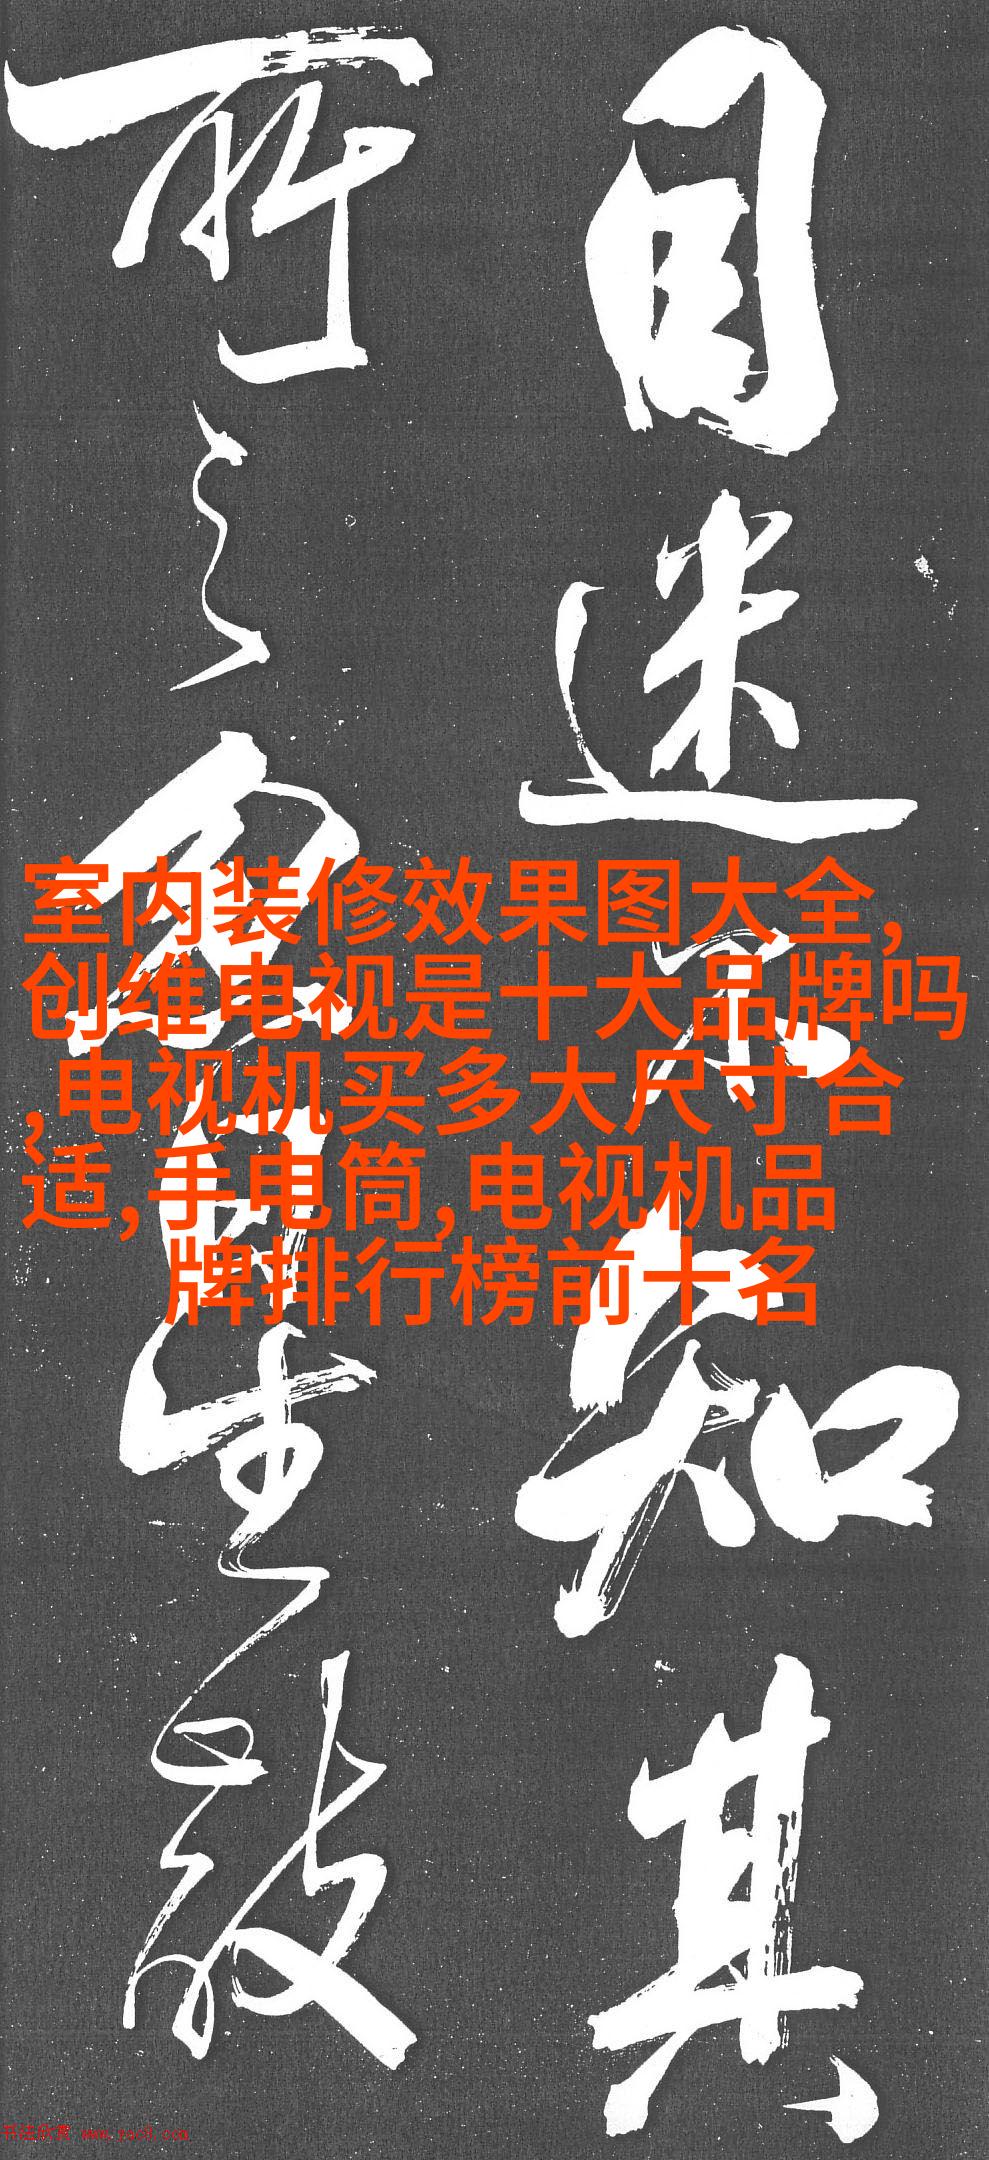 目迷不知其
所之忽自生敬
室内装修效果图大全,
创维电视是十大品牌吗
,电视机买多大尺寸合
适,手电筒,电视机品
牌排行榜前十名